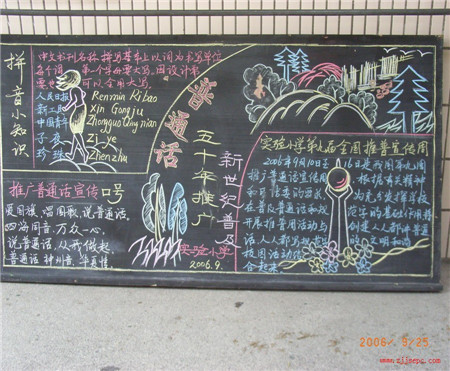 拼音小知识
中文书刊名称拼写基本上以词为书写单位
每个词第一个字母要大写,因设计需
要也可以全用大写。
人民日报 Renmin Ribao
新工具 Xin Gongju
中国青年 Zhongguo Qingnian
子夜 Zi-ye
珍珠 Zhenzhu
推广普通话宣传口号
爱国旗,唱国歌,说普通话。
四海同音,万众一心。
说普通话,从我做起。
普通话,神州音,华夏情。
普通话
五十年推广
新世纪普及
实验小学
2006.9.
实验小学第九届全国推普宣传周
2006年9月10日
16日是
推广普通话宣传周
根据有关精神
和
的要求,
为充分发挥学校
在普及普通话和
开展推普用活动与
创建人人都讲普通
话,人人
校园活动
合起来
2006. 9.25
www.zjjsepq.com